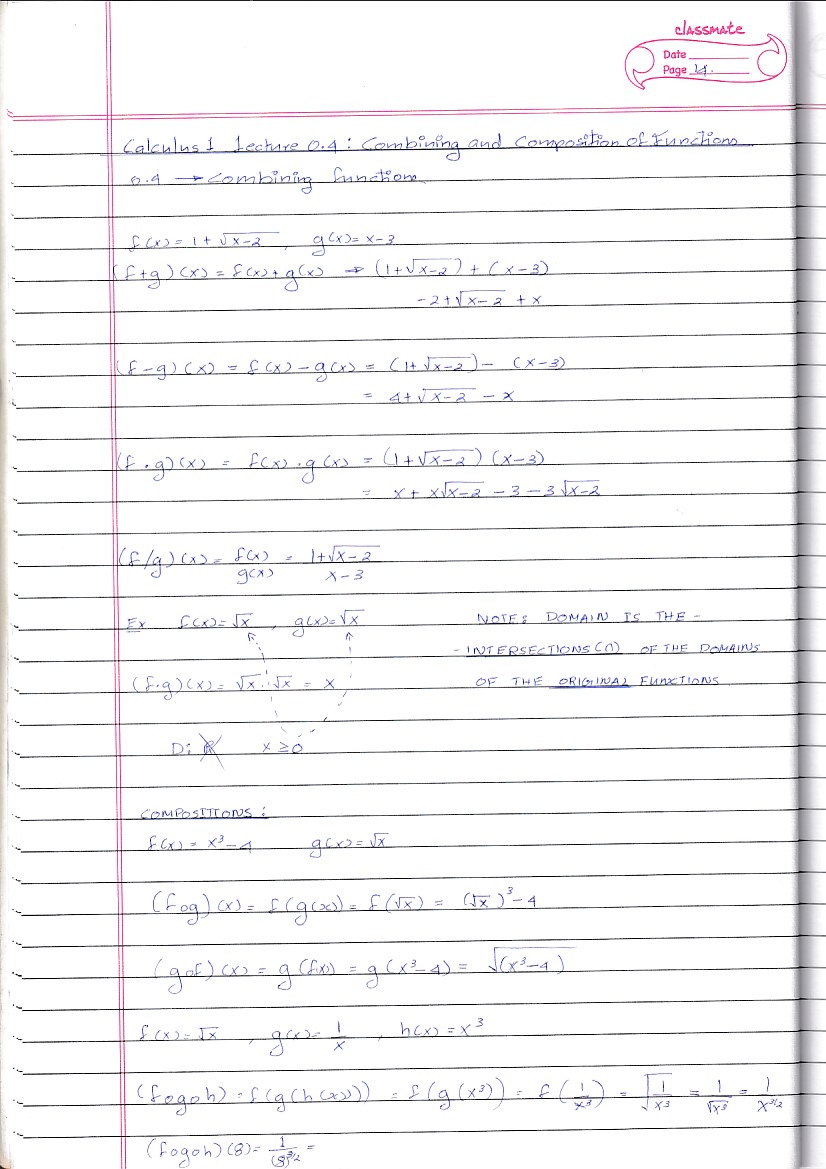 classmate
Date
Page 4.
Calculus 1 Lecture 0.4 : Combining and Composition of Functions
0.4 → Combining functions
f(x) = 1 + √(x-2) , g(x) = x-3
(f+g)(x) = f(x) + g(x) → (1+√(x-2)) + (x-3)
-2 + √(x-2) + x
(f-g)(x) = f(x) - g(x) = (1+√(x-2)) - (x-3)
= 4 + √(x-2) - x
(f·g)(x) = f(x)·g(x) = (1+√(x-2))(x-3)
= x + x√(x-2) - 3 - 3√(x-2)
(f/g)(x) = f(x)/g(x) = (1+√(x-2))/(x-3)
Ex f(x)=√x , g(x)=√x
NOTE: DOMAIN IS THE -
- INTERSECTIONS(∩) OF THE DOMAINS
(f·g)(x) = √x·√x = x
OF THE ORIGINAL FUNCTIONS
D: R x ≥ 0
COMPOSITIONS :
f(x) = x³-4 g(x) = √x
(fog)(x) = f(g(x)) = f(√x) = (√x)³-4
(gof)(x) = g(f(x)) = g(x³-4) = √(x³-4)
f(x) = √x , g(x) = 1/x , h(x) = x³
(fogoh) = f(g(h(x))) = f(g(x³)) = f(1/x³) = √(1/x³) = 1/√x³ = 1/x^(3/2)
(fogoh)(8) = 1/(8)^(3/2) =